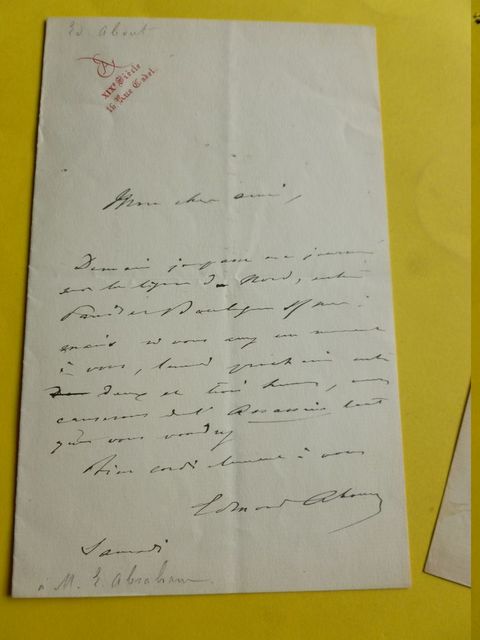 Ed. About
XIXe Siècle
16 Rue Cadet.
Mon cher ami,
Demain je passe ma journée
sur la ligne du Nord, entre
Paris et Boulogne s/ mer.
mais si vous avez un moment
à vous, lundi prochain entre
deux et trois heures, nous
causerons de l'Assassin tant
que vous voudrez
Bien cordialement à vous
Edmond About
Samedi
à M. E. Abraham.